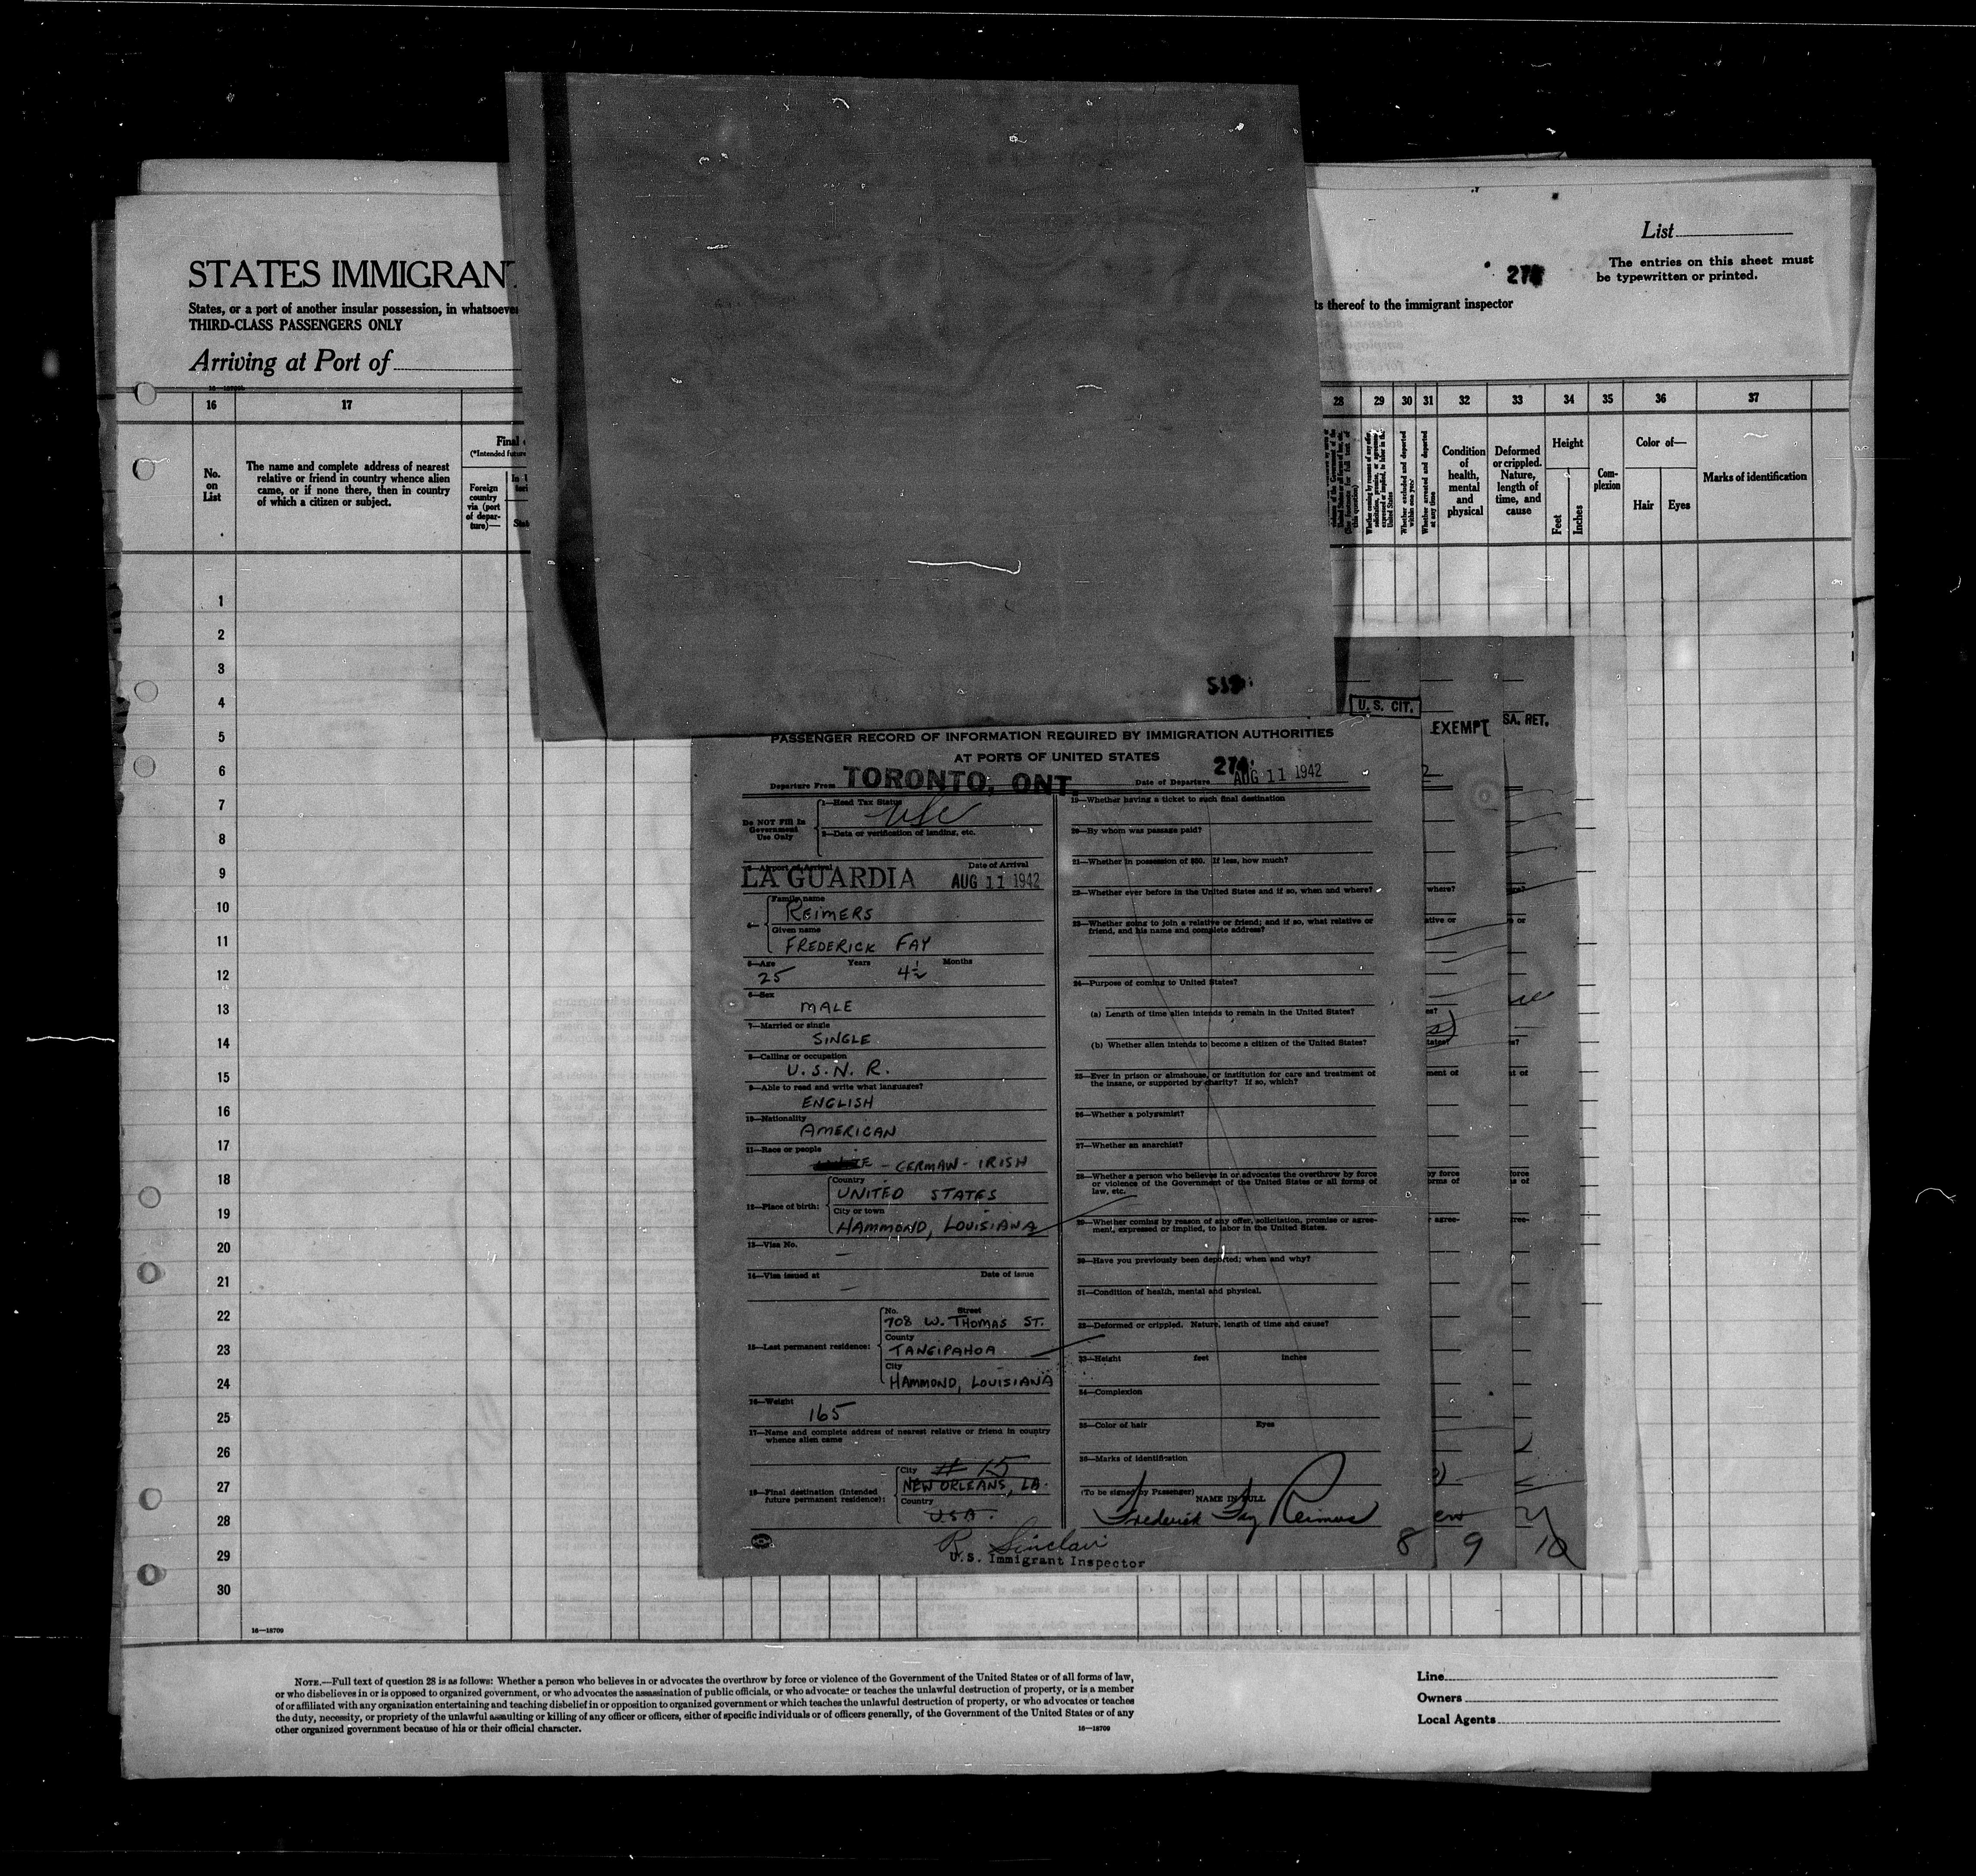 List
The entries on this sheet must
be typewritten or printed.
274
STATES IMMIGRANT
States, or a part of another insular possession, in whatsoever
ts thereof to the immigrant inspector
THIRD-CLASS PASSENGERS ONLY
Arriving at Port of
16 17 28 29 30 31 32 33 34 35 36 37
No.
on
List
The name and complete address of nearest
relative or friend in country whence alien
came, or if none there, then in country
of which a citizen or subject.
Final
(*Intended future
Foreign
country
via (port
of depar-
ture)—
Whether excluded and deported
within one year
Whether arrested and deported
at any time
Condition
of
health,
mental
and
physical
Deformed
or crippled.
Nature,
length of
time, and
cause
Height
Feet
Inches
Com-
plexion
Color of—
Hair
Eyes
Marks of identification
1
2
3
4
5
6
7
8
9
10
11
12
13
14
15
16
17
18
19
20
21
22
23
24
25
26
27
28
29
30
16—18709
U. S. CIT.
EXEMPT
SA. RET.
PASSENGER RECORD OF INFORMATION REQUIRED BY IMMIGRATION AUTHORITIES
AT PORTS OF UNITED STATES
Departure From TORONTO, ONT.
Date of Departure AUG 11 1942
274
Do NOT Fill In
Government
Use Only
1—Head Tax Status
USC
2—Data or verification of landing, etc.
3—Airport of Arrival
Date of Arrival
LA GUARDIA AUG 11 1942
4—
Family name
REIMERS
Given name
FREDERICK FAY
5—Age Years Months
25 4½
6—Sex
MALE
7—Married or single
SINGLE
8—Calling or occupation
U.S.N.R.
9—Able to read and write what languages?
ENGLISH
10—Nationality
AMERICAN
11—Race or people
- GERMAN - IRISH
12—Place of birth:
Country
UNITED STATES
City or town
HAMMOND, LOUISIANA
13—Visa No.
—
14—Visa issued at Date of issue
—
15—Last permanent residence:
No. Street
708 W. THOMAS ST.
County
TANGIPAHOA
City
HAMMOND, LOUISIANA
16—Weight
165
17—Name and complete address of nearest relative or friend in country
whence alien came
# 15
18—Final destination (Intended
future permanent residence):
City
NEW ORLEANS, LA.
Country
USA.
19—Whether having a ticket to such final destination
20—By whom was passage paid?
21—Whether in possession of $50. If less, how much?
22—Whether ever before in the United States and if so, when and where?
23—Whether going to join a relative or friend; and if so, what relative or
friend, and his name and complete address?
24—Purpose of coming to United States?
(a) Length of time alien intends to remain in the United States?
(b) Whether alien intends to become a citizen of the United States?
25—Ever in prison or almshouse, or institution for care and treatment of
the insane, or supported by charity? If so, which?
26—Whether a polygamist?
27—Whether an anarchist?
28—Whether a person who believes in or advocates the overthrow by force
or violence of the Government of the United States or all forms of
law, etc.
29—Whether coming by reason of any offer, solicitation, promise or agree-
ment, expressed or implied, to labor in the United States.
30—Have you previously been deported; when and why?
31—Condition of health, mental and physical.
32—Deformed or crippled. Nature, length of time and cause?
33—Height feet inches
34—Complexion
35—Color of hair Eyes
36—Marks of identification
(To be signed by Passenger) NAME IN FULL
Frederick Fay Reimers
R. Sinclair
U.S. Immigrant Inspector
8 9 10
NOTE.—Full text of question 28 is as follows: Whether a person who believes in or advocates the overthrow by force or violence of the Government of the United States or of all forms of law,
or who disbelieves in or is opposed to organized government, or who advocates the assassination of public officials, or who advocates or teaches the unlawful destruction of property, or is a member
of or affiliated with any organization entertaining and teaching disbelief in or opposition to organized government or which teaches the unlawful destruction of property, or who advocates or teaches
the duty, necessity, or propriety of the unlawful assaulting or killing of any officer or officers, either of specific individuals or of officers generally, of the Government of the United States or of any
other organized government because of his or their official character.
16—18709
Line
Owners
Local Agents